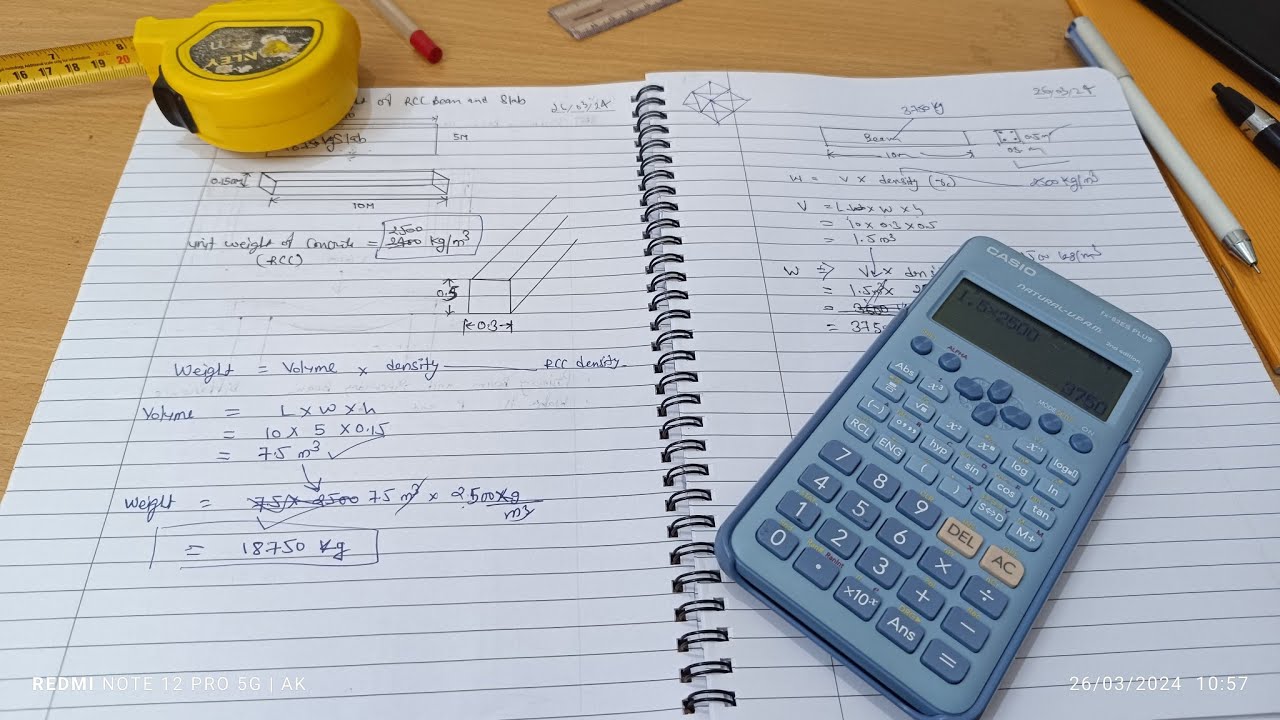 7 8
16 17 18 19 20
of RCC Beam and Slab
5M
0.150M
10M
Unit weight of concrete = 2500
2400 kg/m³
(RCC)
0.5
0.3
Weight = Volume × density RCC density
Volume = L × W × h
= 10 × 5 × 0.15
= 7.5 m³
Weight = 7.5 × 2500 7.5 m³ × 2500 kg/m³
= 18750 kg
3750 kg
Beam
10m
0.5 m
0.3 m
W = V × density
2500 kg/m³
V = L × W × h
= 10 × 0.3 × 0.5
= 1.5 m³
W ⇒ V × den
500 kg/m³
= 1.5m³ × 2
= 3750
CASIO
NATURAL-V.P.A.M.
fx-82ES PLUS
2nd edition
1.5×2500
3750
ALPHA MODE ON
Abs x³ x⁻¹ log
√ x² log ln
(−) hyp sin cos tan
RCL ENG ( ) S⇔D M+
7 8 9 DEL AC
4 5 6 × ÷
1 2 3 + −
0 . ×10ˣ Ans =
REDMI NOTE 12 PRO 5G | AK
26/03/2024 10:57